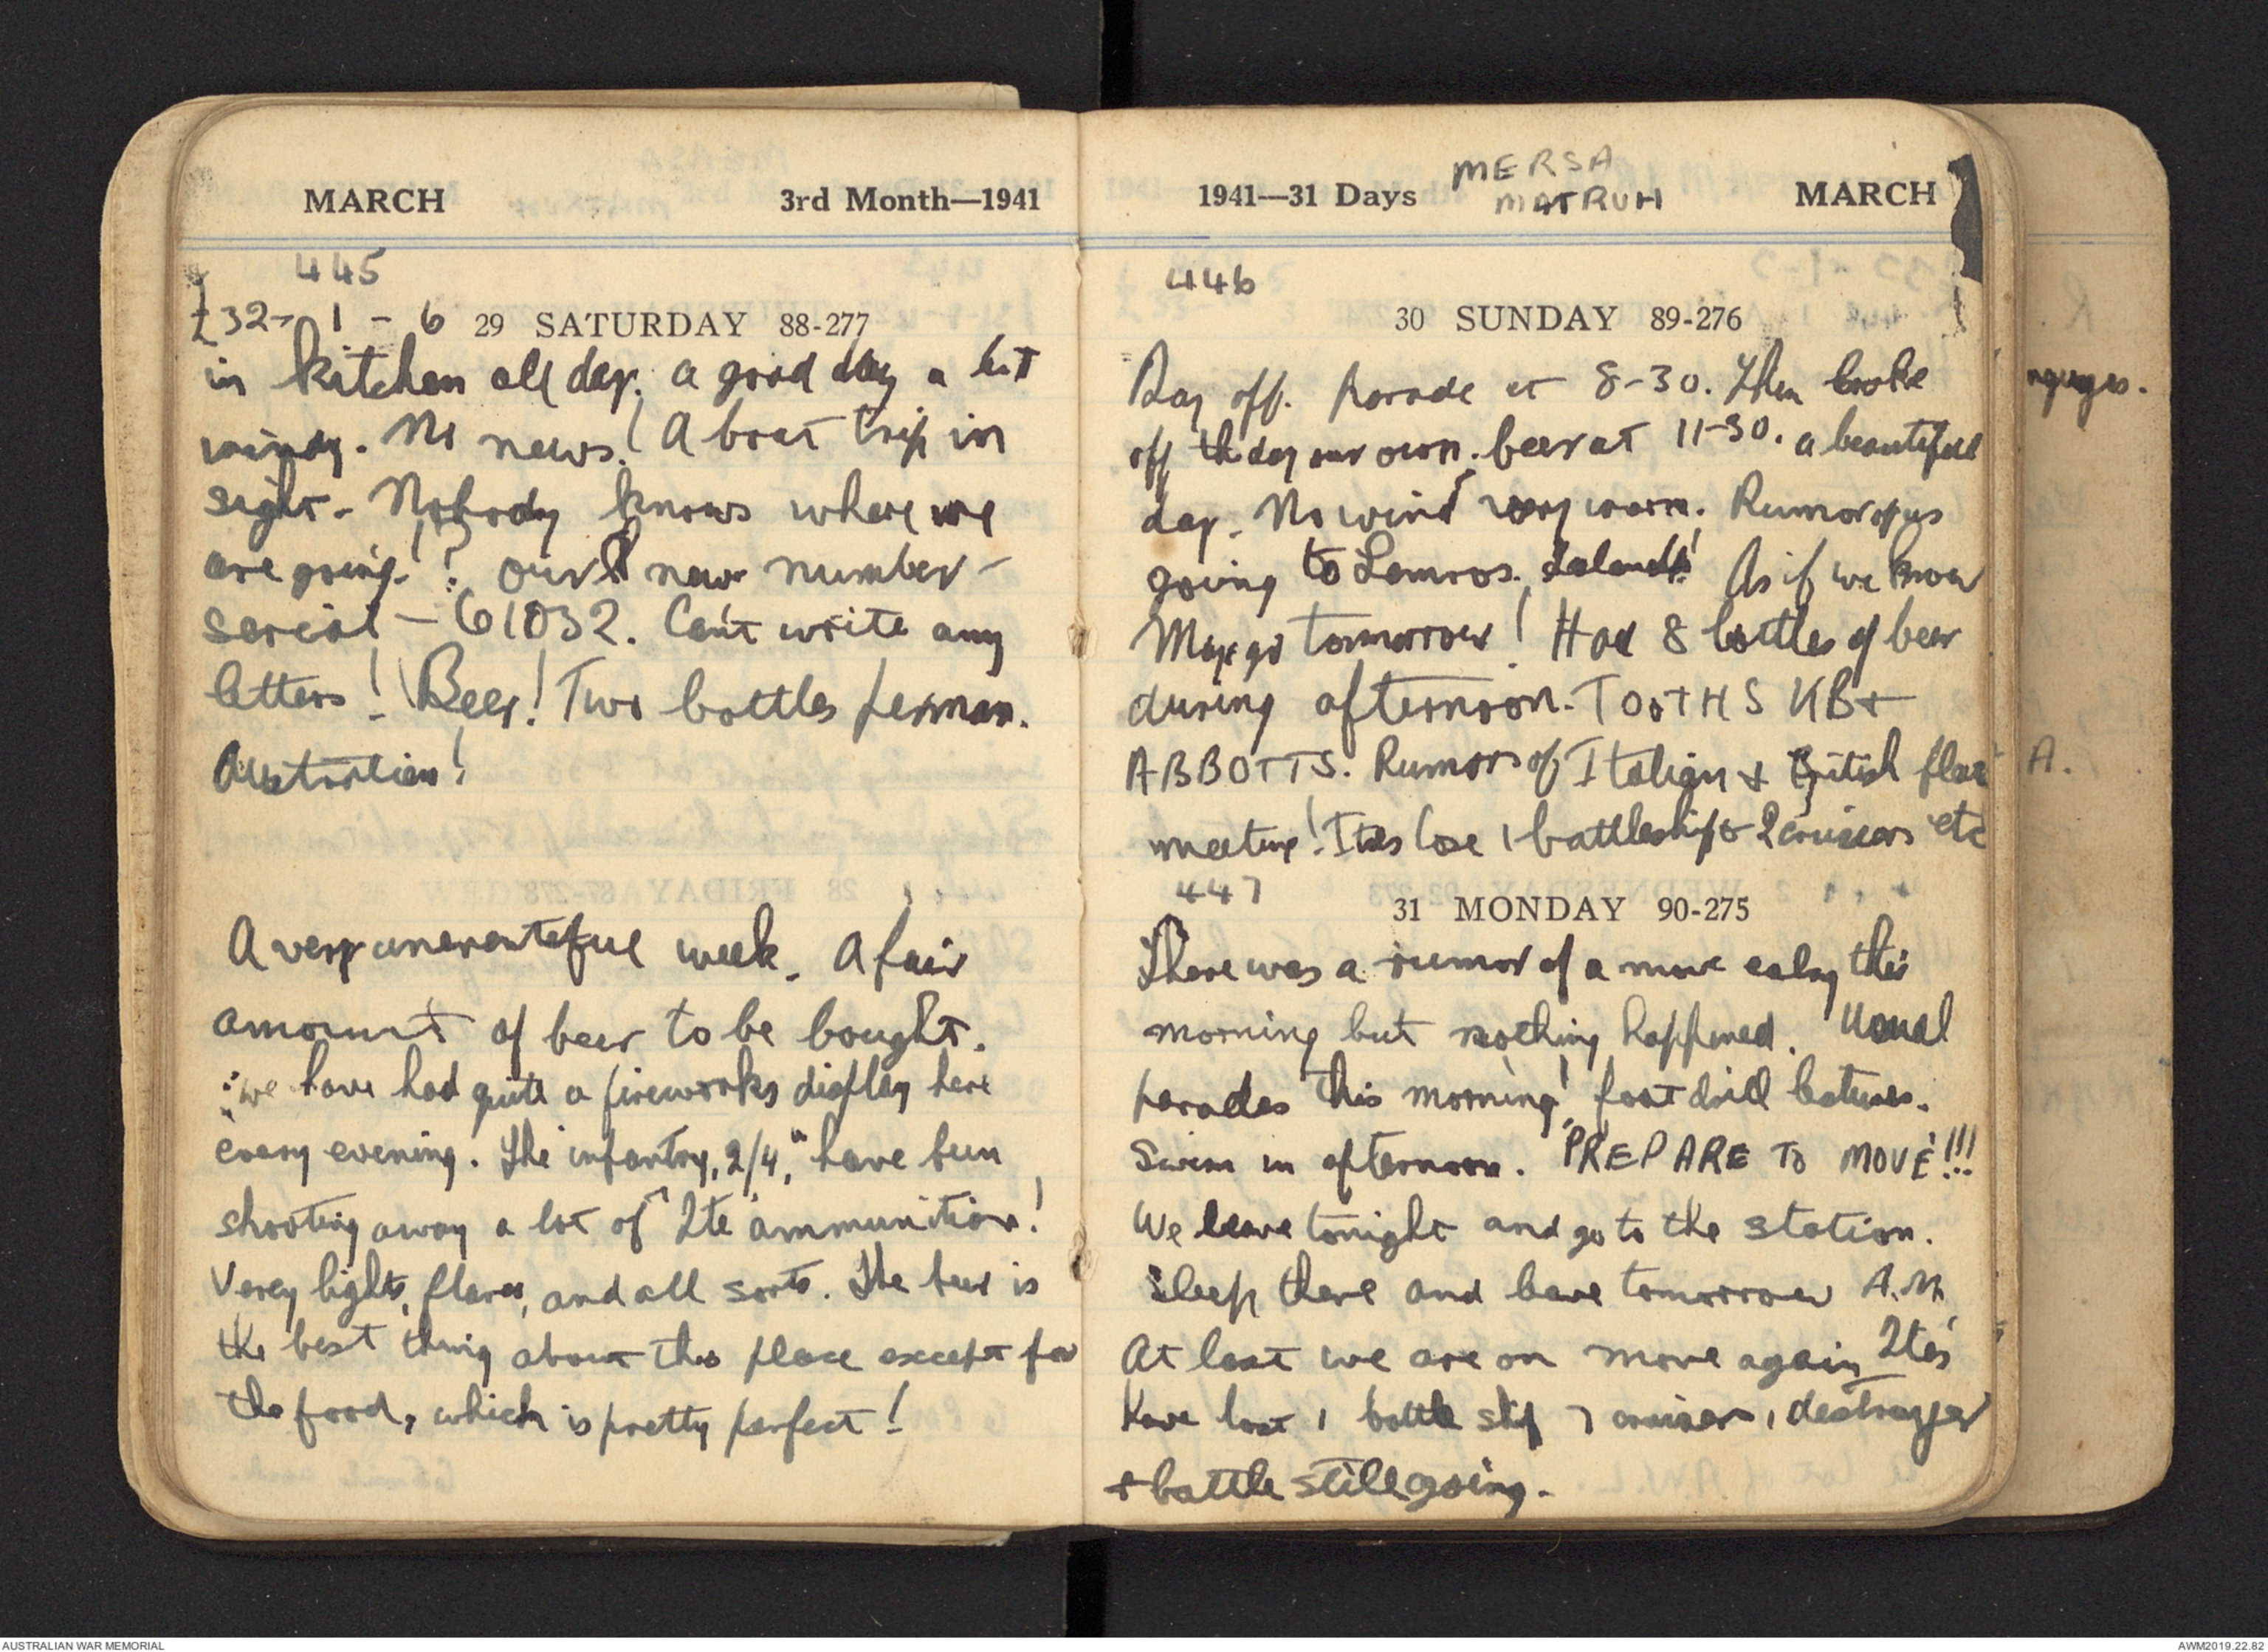 MARCH 3rd Month—1941
445
£32- 1 - 6 29 SATURDAY 88-277
in kitchen all day. a good day a bit
windy. No news! A boat trip in
sight - Nobody knows where we
are going!? our new number -
serial - 61032. Can't write any
letters! Beer! Two bottles perman.
Australian!
A very uneventeful week. A fair
amount of beer to be bought.
we have had quite a fireworks display here
every evening. The infantry, 2/4, have been
shooting away a lot of "Ite" ammunition!
Verey lights, flares, and all sorts. The beer is
the best thing about this place except for
the food, which is pretty perfect!
1941—31 Days MERSA MATRUH MARCH
446
30 SUNDAY 89-276
Day off. Parade at 8-30. Then broke
off the day our own. beer at 11-30. a beautiful
day. No wind very warm. Rumor of us
going to Lemros. Island! As if we know
May go tomorrow! Had 8 bottles of beer
during afternoon. TOOTHS KB +
ABBOTTS. Rumors of Italian & British fleet
meeting! Ites lose 1 battleship & 2 cruisers etc
447
31 MONDAY 90-275
There was a rumor of a move ealry this
morning but nothing happened. Usual
parades this morning! foot drill lectures.
Swim in afternoon. PREPARE TO MOVE!!!
We leave tonight and go to the station.
Sleep there and leave tomorrow A.M.
At last we are on move again Ites'
Have lost 1 battle ship 7 cruisers, destroyer
+ battle still going.
A.
AUSTRALIAN WAR MEMORIAL AWM2019.22.82